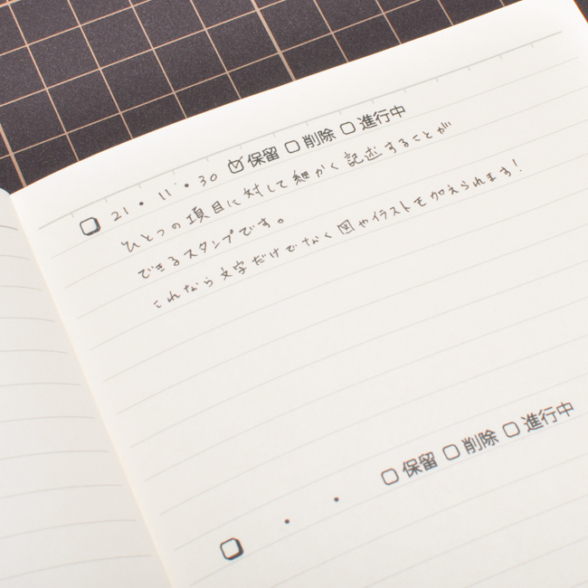 □ 21・11・30 ☑保留 □削除 □進行中
ひとつの項目に対して細かく記述することが
できるスタンプです。
これなら文字だけでなく図やイラストも加えられます!
□ ・ ・ □保留 □削除 □進行中